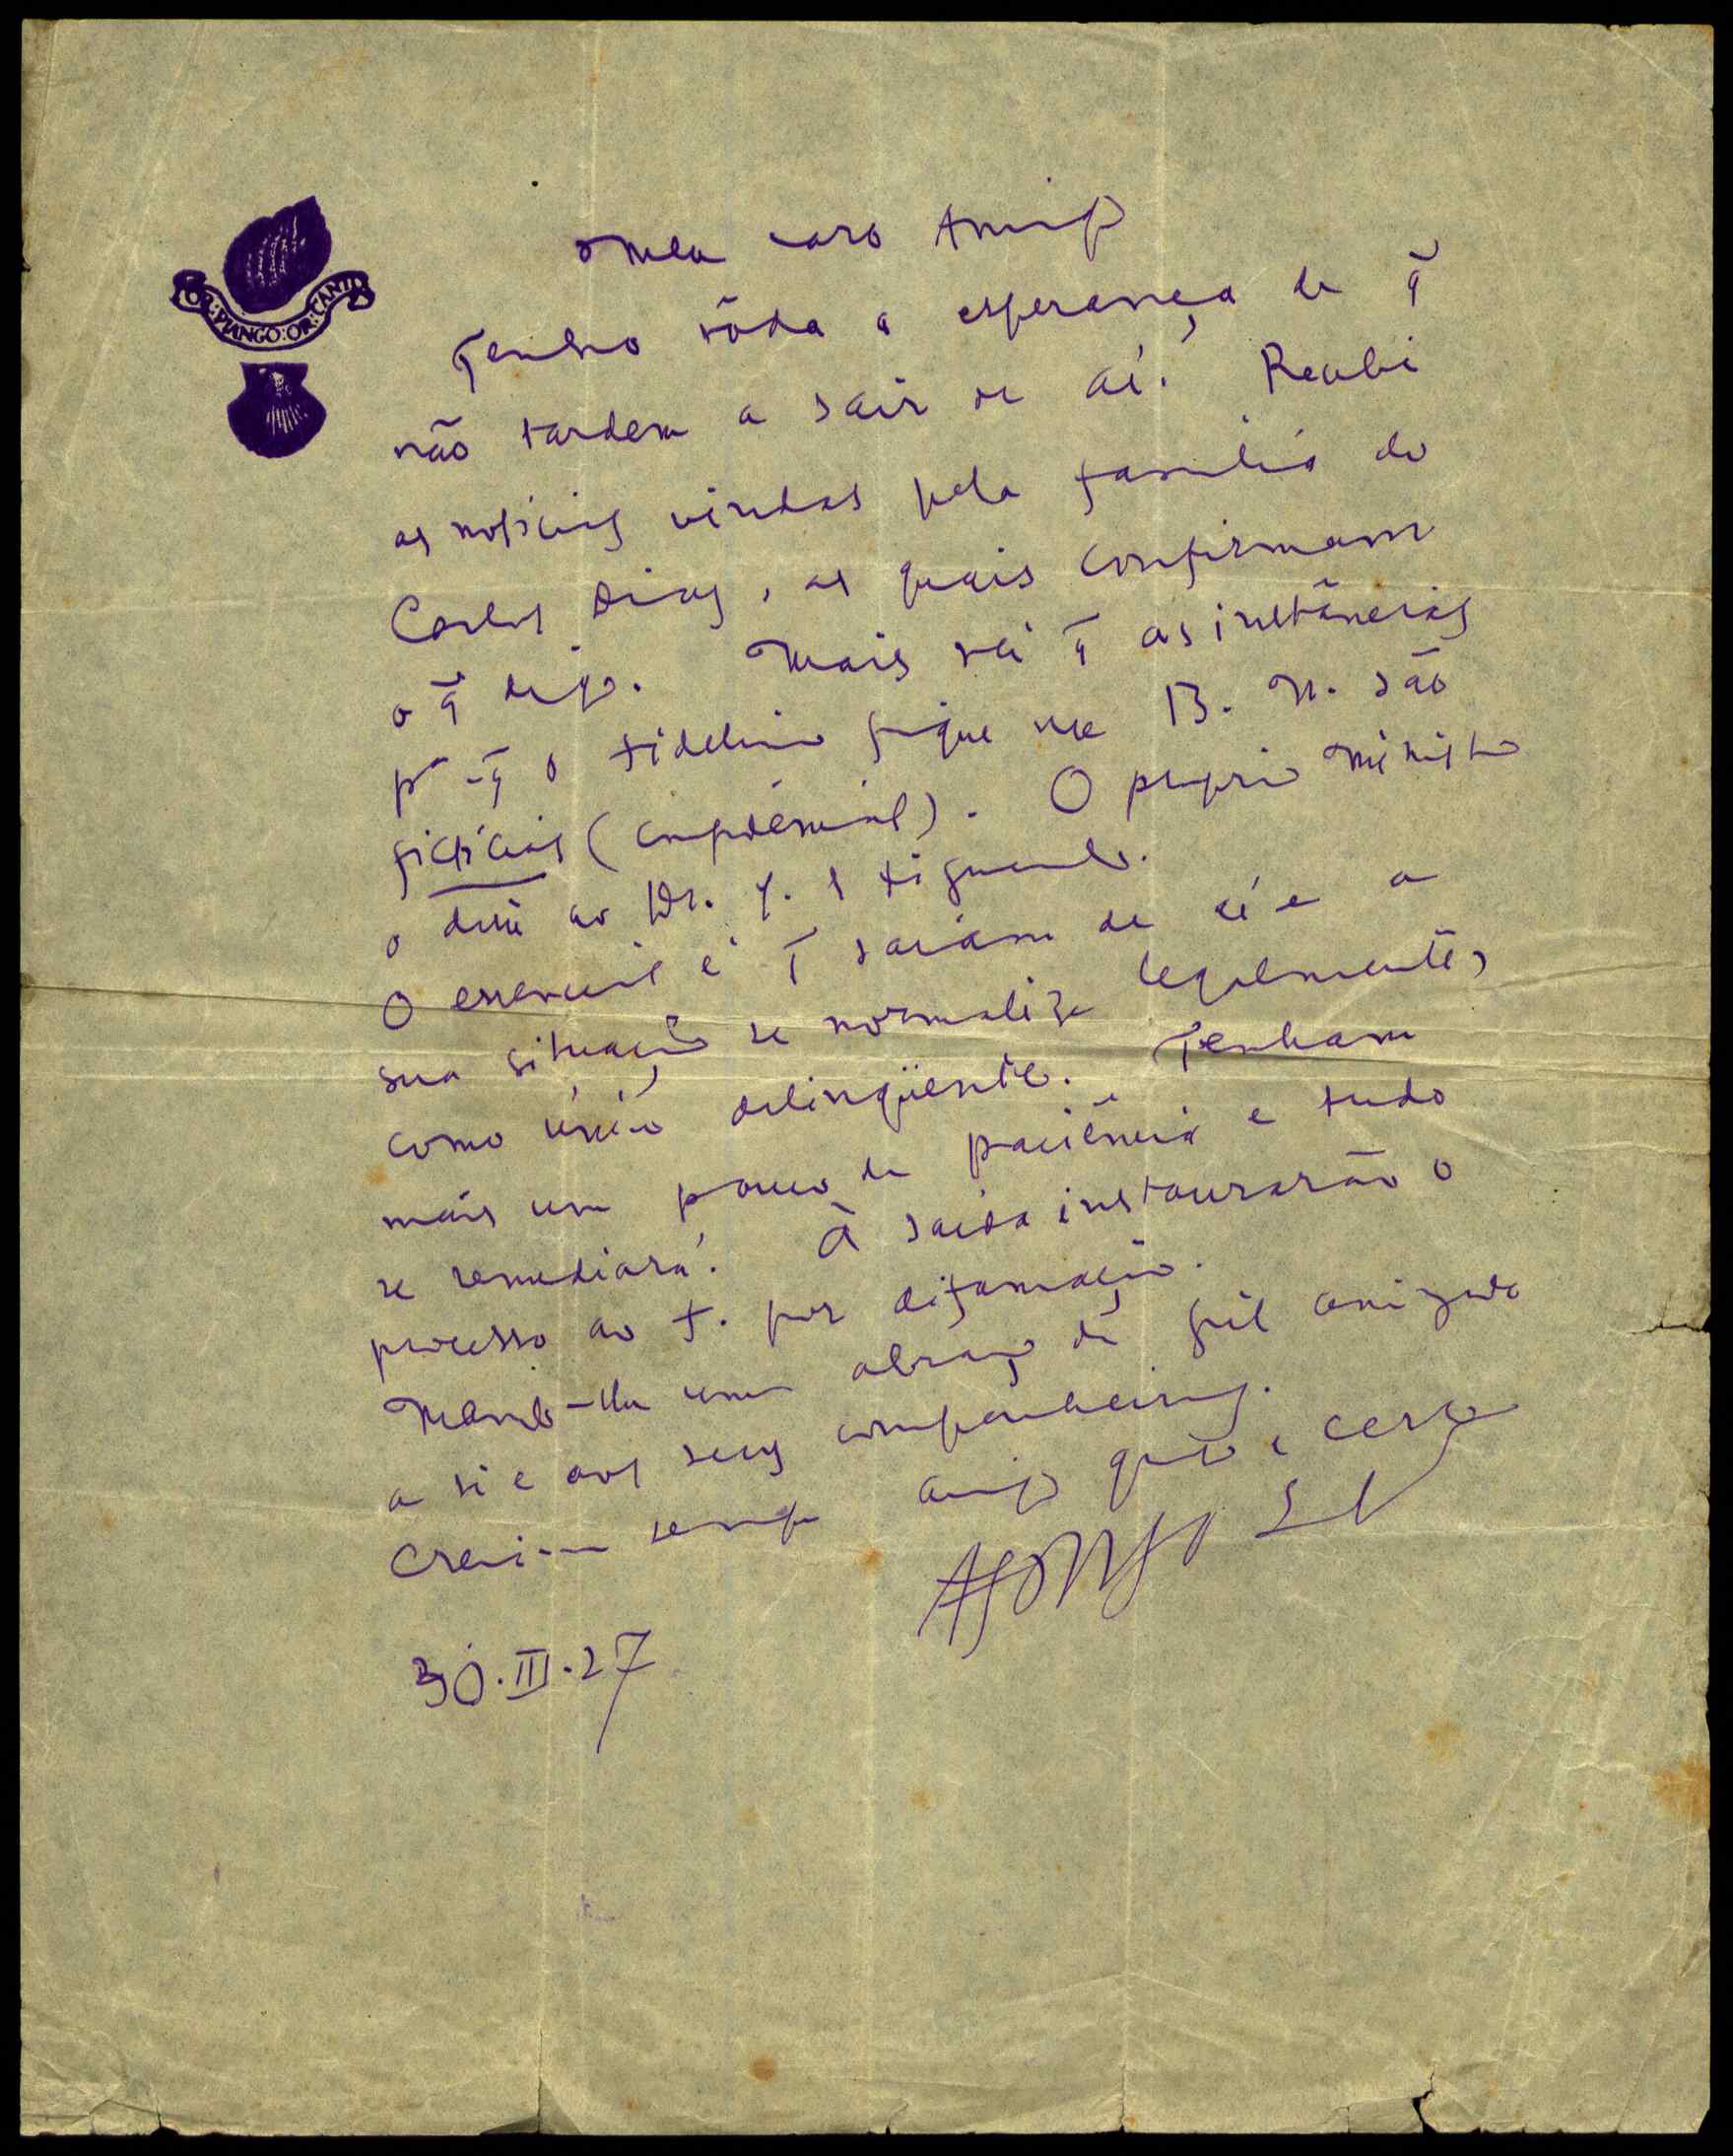 OR: PIANGO: OR: CANTO
Meu caro Amigo
Tenho tôda a esperança de q̃
não tardem a sair de aí. Recebi
as notícias vindas pela família do
Carlos Dias, as quais confirmam
o q̃ digo. Mais sei q̃ as instâncias
pª q̃ o Fidelino fique na B. N. são
fictícias (confidencial). O próprio ministro
o disse ao Dr. J. de Figueiredo.
O essencial é q̃ saiam de aí e a
sua situação se normalize legalmente,
como único delinqüente. Tenham
mais um pouco de paciência e tudo
se remediará. À saída instaurarão o
processo ao F. por difamação.
Mando-lhe um abraço de fiel amizade
a si e aos seus companheiros.
Creia-me sempre amigo grato e certo
Afonso
30.III.27